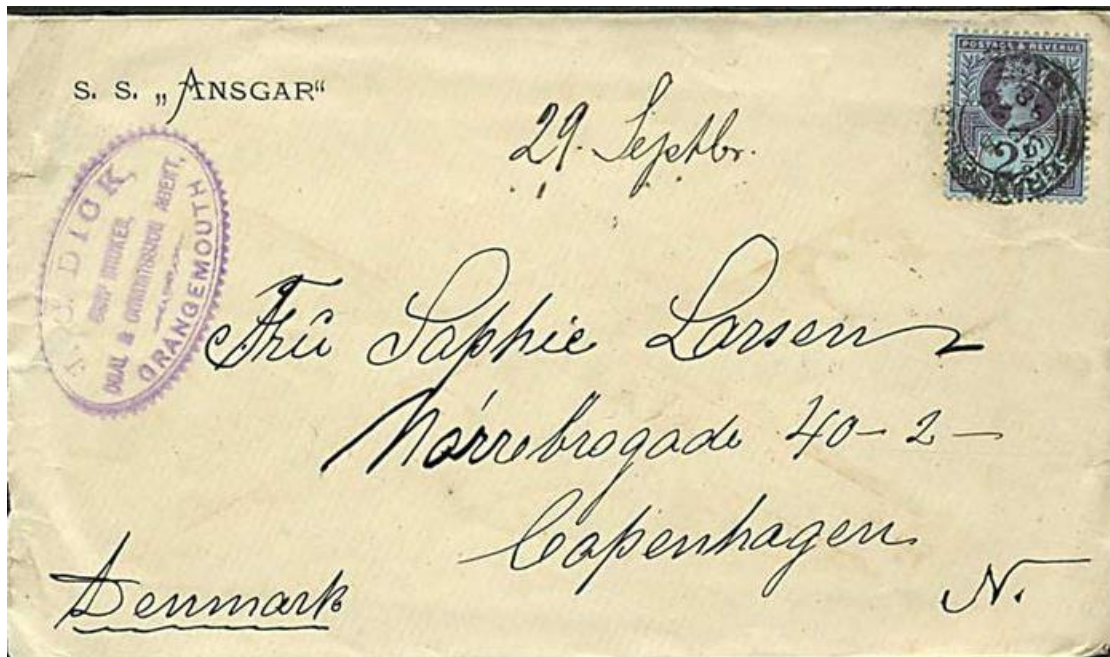 S. S. „ANSGAR“
29. Septbr.
POSTAGE & REVENUE
DICK,
SHIP BROKER,
COAL & COMMISSION AGENT,
GRANGEMOUTH
Frû Saphie Larsen
Nórrebrogade 40-2-
Copenhagen
N.
Denmark